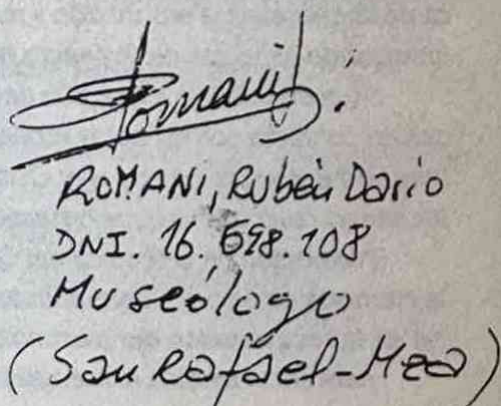 Romani
ROMANI, Rubén Dario
DNI. 16.698.108
Museólogo
(San Rafael-Mza)